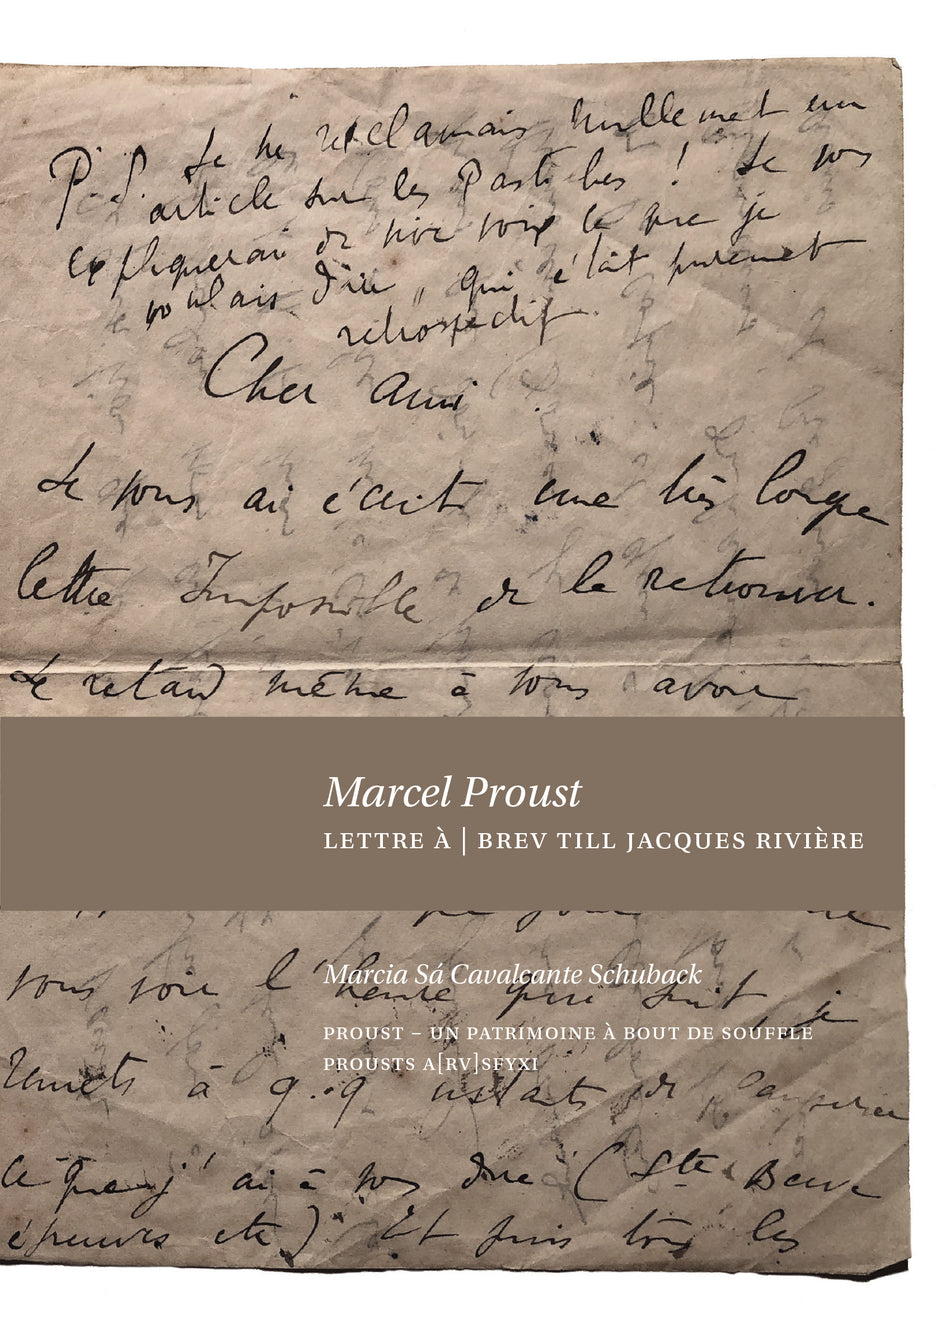 P.S. Je ne réclamais nullement un
article sur les Pastiches ! Je vous
expliquerai de vive voix ce que je
voulais dire, qui était purement
rétrospectif.
Cher ami
Je vous ai écrit une très longue
lettre Impossible de la retrouver.
Le retard même à vous avoir
Marcel Proust
LETTRE À | BREV TILL JACQUES RIVIÈRE
vous voir l'heure qui suit, je
Marcia Sá Cavalcante Schuback
PROUST – UN PATRIMOINE À BOUT DE SOUFFLE
PROUSTS A[RV]SFYXI
remets à q.q instants de
ce que j'ai à vous dire (Ste Beuve
épreuves etc) Et puis tous les